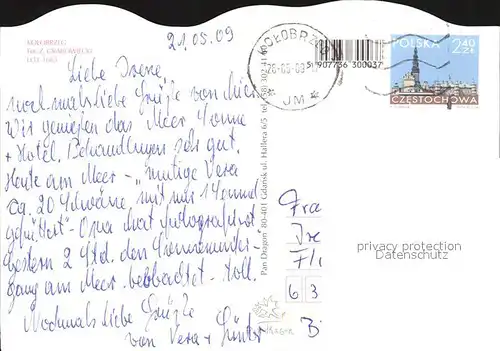 KOŁOBRZEG
21.05.09
Liebe Irene,
nochmals liebe Grüße von hier
Wir genießen das Meer Sonne
+ Hotel, Behandlungen sehr gut.
Heute am Meer - "mutige Vera
ca. 20 Schwäne, mit mir
gefüttert" - Oma hat fotografiert
Gestern 2 Std. den Sonnenunter-
gang am Meer beobachtet - toll.
Nochmals liebe Grüße
von Vera + Günter
Pan Dragon 80-401 Gdańsk ul. Hallera 6/5 tel.
KOŁOBRZEG
JM
5 907736 300037
POLSKA 2,40 ZŁ
CZĘSTOCHOWA
Fra
Ire
6 3
privacy protection
Datenschutz